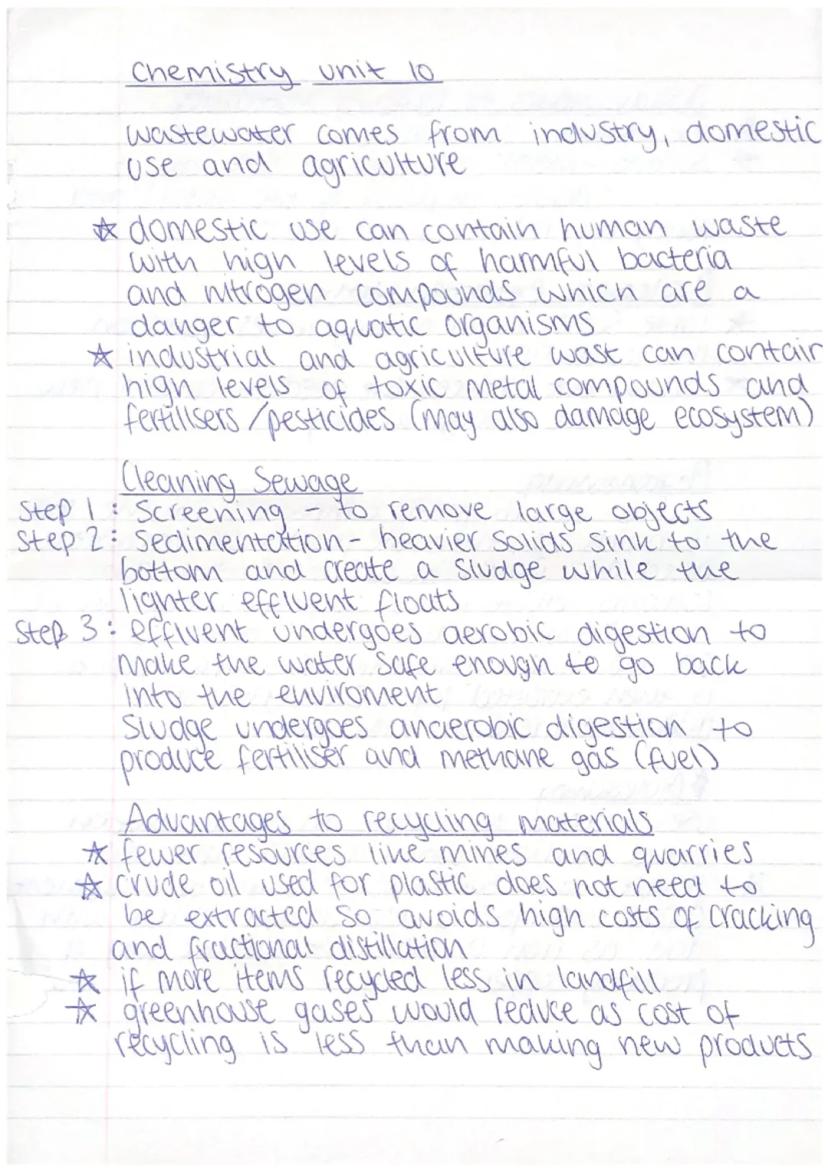 Chemistry unit 10
wastewater comes from industry, domestic
use and agriculture
☆ domestic use can contain human waste
with high levels of harmful bacteria
and nitrogen compounds which are a
danger to aquatic organisms
☆ industrial and agriculture wast can contain
high levels of toxic metal compounds and
fertilisers/pesticides (may also damage ecosystem)
Cleaning Sewage
Step 1: Screening - to remove large objects
Step 2: Sedimentation - heavier solids sink to the
bottom and create a sludge while the
lighter effluent floats
Step 3: effluent undergoes aerobic digestion to
make the water safe enough to go back
into the enviroment
Sludge undergoes anaerobic digestion to
produce fertiliser and methane gas (fuel)
Advantages to recycling materials
☆ fewer resources like mines and quarries
☆ crude oil used for plastic does not need to
be extracted so avoids high costs of cracking
and fractional distillation
☆ if more items recycled less in landfill
☆ greenhouse gases would reduce as cost of
recycling is less than making new products